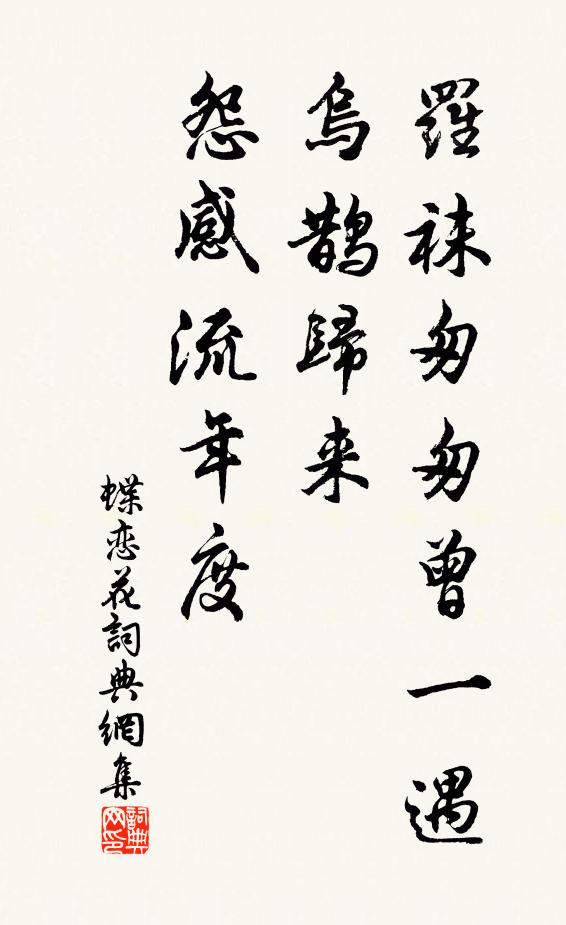 羅袜匆匆曾一遇
烏鵲歸来
怨感流年度
蝶恋花詞典網集
詞典网印